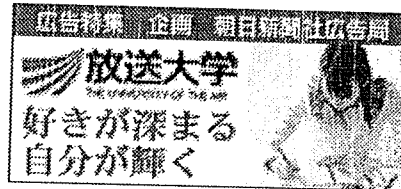 広告特集 企画 朝日新聞社広告局
放送大学
THE UNIVERSITY OF THE AIR
好きが深まる
自分が輝く